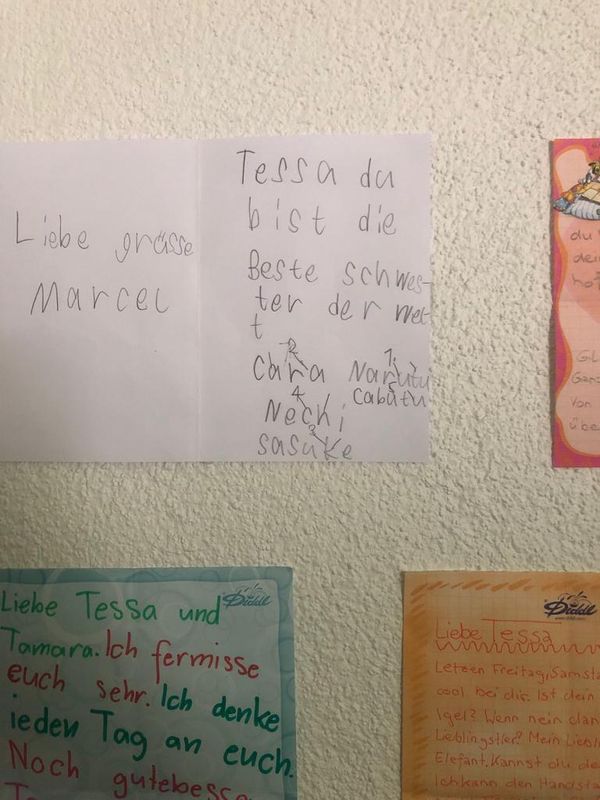 Liebe grüsse
Marcel
Tessa du
bist die
Beste schwes-
ter der wel-
t
2
Cara
1.
Narutu
cabutu
4
Necki
3
sasuke
du
dein
hof
Gl
Ganz
von
übe
Diddl
Liebe Tessa und
Tamara. Ich fermisse
euch sehr. Ich denke
ieden Tag an euch.
Noch gutebesse
Diddl
Liebe Tessa
Letzen Freitag, Samsta
cool bei dir. Ist dein
Igel? Wenn nein dan
Lieblingstier? Mein Liebli
Elefant. Kannst du de
Ich kann den Handsta